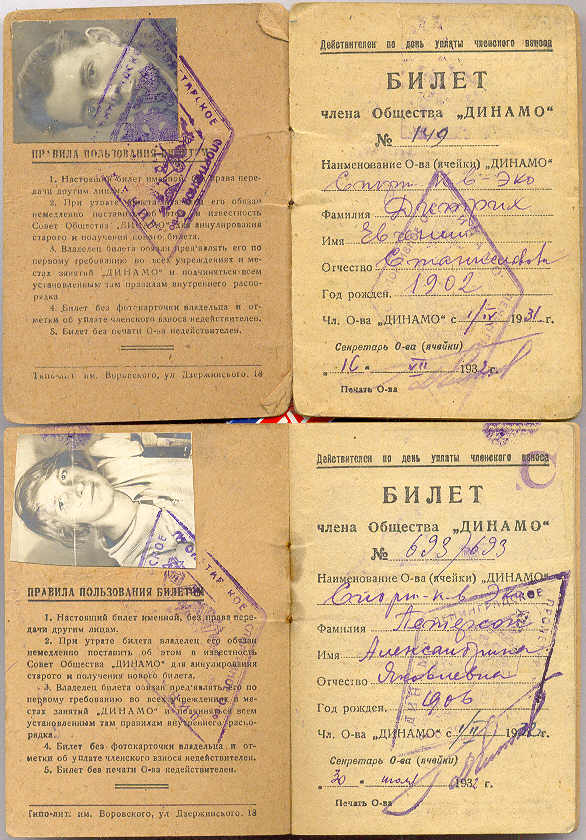 ПРАВИЛА ПОЛЬЗОВАНИЯ БИЛЕТОМ
1. Настоящий билет именной, без права пере-
дачи другим лицам.
2. При утрате билета владелец его обязан
немедленно поставить об этом в известность
Совет Общества „ДИНАМО" для аннулирования
старого и получения нового билета.
3. Владелец билета обязан предъявлять его по
первому требованию во всех учреждениях и ме-
стах занятий „ДИНАМО" и подчиняться всем
установленным там правилам внутреннего распо-
рядка
4. Билет без фотокарточки владельца и от-
метки об уплате членского взноса недействителен.
5. Билет без печати О-ва недействителен.
Типо-лит. им. Воровского, ул Дзержинского. 18
Действителен по день уплаты членского взноса
БИЛЕТ
члена Общества „ДИНАМО"
№ 149
Наименование О-ва (ячейки) „ДИНАМО"
Спорт-к-в Эко
Фамилия Дитрих
Имя Евгений
Отчество
Год рожден. 1902
Чл. О-ва „ДИНАМО" с 1931 г.
Секретарь О-ва (ячейки)
„16" VII 1932 г.
Печать О-ва
ПРАВИЛА ПОЛЬЗОВАНИЯ БИЛЕТОМ
1. Настоящий билет именной, без права пере-
дачи другим лицам.
2. При утрате билета владелец его обязан
немедленно поставить об этом в известность
Совет Общества „ДИНАМО" для аннулирования
старого и получения нового билета.
3. Владелец билета обязан предъявлять его по
первому требованию во всех учреждениях и ме-
стах занятий „ДИНАМО" и подчиняться всем
установленным там правилам внутреннего распо-
рядка.
4. Билет без фотокарточки владельца и от-
метки об уплате членского взноса недействителен.
5. Билет без печати О-ва недействителен.
Типо-лит. им. Воровского, ул Дзержинского. 18
Действителен по день уплаты членского взноса
БИЛЕТ
члена Общества „ДИНАМО"
№ 693/693
Наименование О-ва (ячейки) „ДИНАМО"
Спорт-к-в Эко
Фамилия Петерсон
Имя Александрина
Отчество Яковлевна
Год рожден. 1906
Чл. О-ва „ДИНАМО" с г.
Секретарь О-ва (ячейки)
„30" июля 1932 г.
Печать О-ва